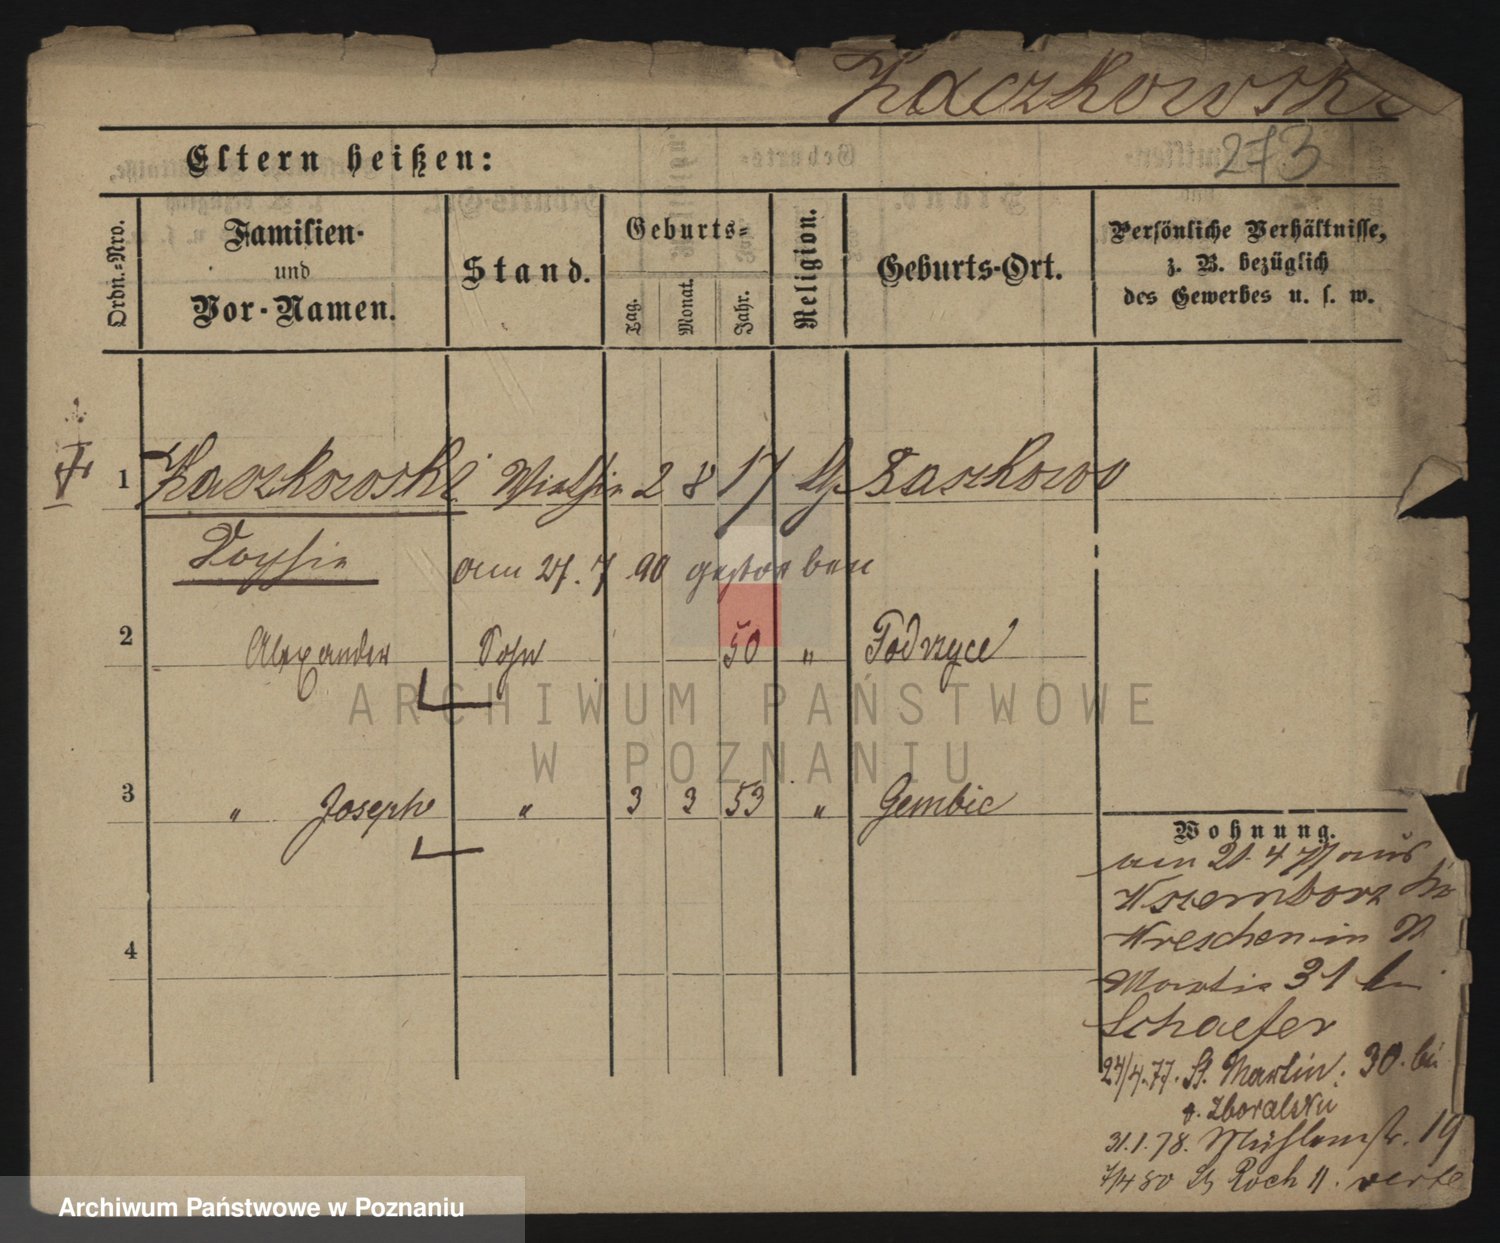 Kaczkowski
273
Eltern heißen:
Ordn.-Nro.
Familien-
und
Vor-Namen.
Stand.
Geburts-
Tag.
Monat.
Jahr.
Religion.
Geburts-Ort.
Persönliche Verhältnisse,
z. B. bezüglich
des Gewerbes u. s. w.
1 Kaczkowski 2 8 17
am 27. 7 90 gestorben
2 Alexander Sohn 50 "
3 " Joseph " 3 3 53 " Gembic
4
Wohnung.
am 21. 4 77 aus
Wreschen in
Martin 31 bei
Schaefer
24/4.77. St. Martin: 30. bei
v. Zboralski
31.1.78. Mühlenstr. 19
7/4 80 St Roch 11. verte
ARCHIWUM PAŃSTWOWE
W POZNANIU
Archiwum Państwowe w Poznaniu